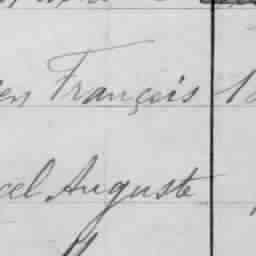 en François 1
cel Auguste